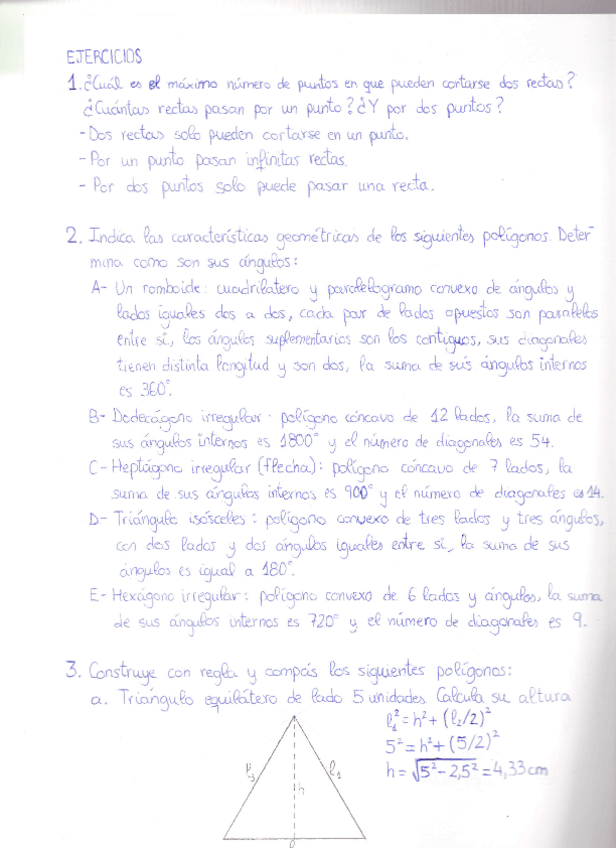 EJERCICIOS
1. ¿Cuál es el máximo número de puntos en que pueden cortarse dos rectas?
¿Cuántas rectas pasan por un punto? ¿Y por dos puntos?
- Dos rectas solo pueden cortarse en un punto.
- Por un punto pasan infinitas rectas.
- Por dos puntos solo puede pasar una recta.
2. Indica las características geométricas de los siguientes polígonos. Deter-
mina como son sus ángulos:
A- Un romboide: cuadrilatero y paralelogramo convexo de ángulos y
lados iguales dos a dos, cada par de lados opuestos son paralelos
entre sí, los ángulos suplementarios son los contiguos, sus diagonales
tienen distinta longitud y son dos, la suma de sus ángulos internos
es 360°.
B- Dodecágono irregular: polígono cóncavo de 12 lados, la suma de
sus ángulos internos es 1800° y el número de diagonales es 54.
C- Heptágono irregular (flecha): polígono cóncavo de 7 lados, la
suma de sus ángulos internos es 900° y el número de diagonales es 14.
D- Triángulo isósceles: polígono convexo de tres lados y tres ángulos,
con dos lados y dos ángulos iguales entre sí, la suma de sus
ángulos es igual a 180°.
E- Hexágono irregular: polígono convexo de 6 lados y ángulos, la suma
de sus ángulos internos es 720° y el número de diagonales es 9.
3. Construye con regla y compás los siguientes polígonos:
a. Triángulo equilátero de lado 5 unidades. Calcula su altura
l₁² = h² + (l₂/2)²
5² = h² + (5/2)²
h = √5² - 2,5² = 4,33 cm
l₃ l₁
h